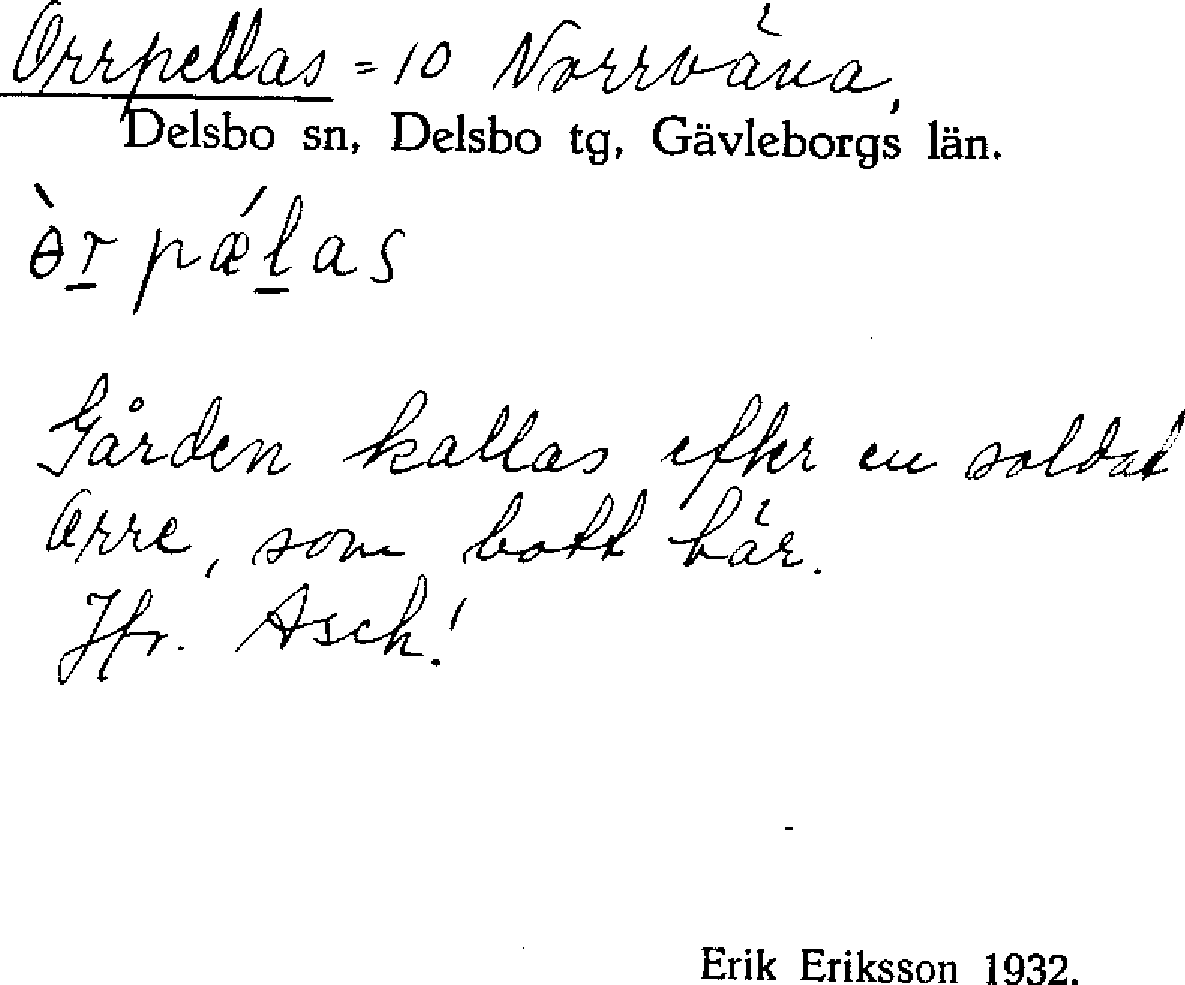 Orrpellas = 10 Norrväna,
Delsbo sn, Delsbo tg, Gävleborgs län.
ɵ̀r̲ pǽl̲as
Gården kallas efter en soldat
Orre, som bott här.
Jfr. Asch!
Erik Eriksson 1932.